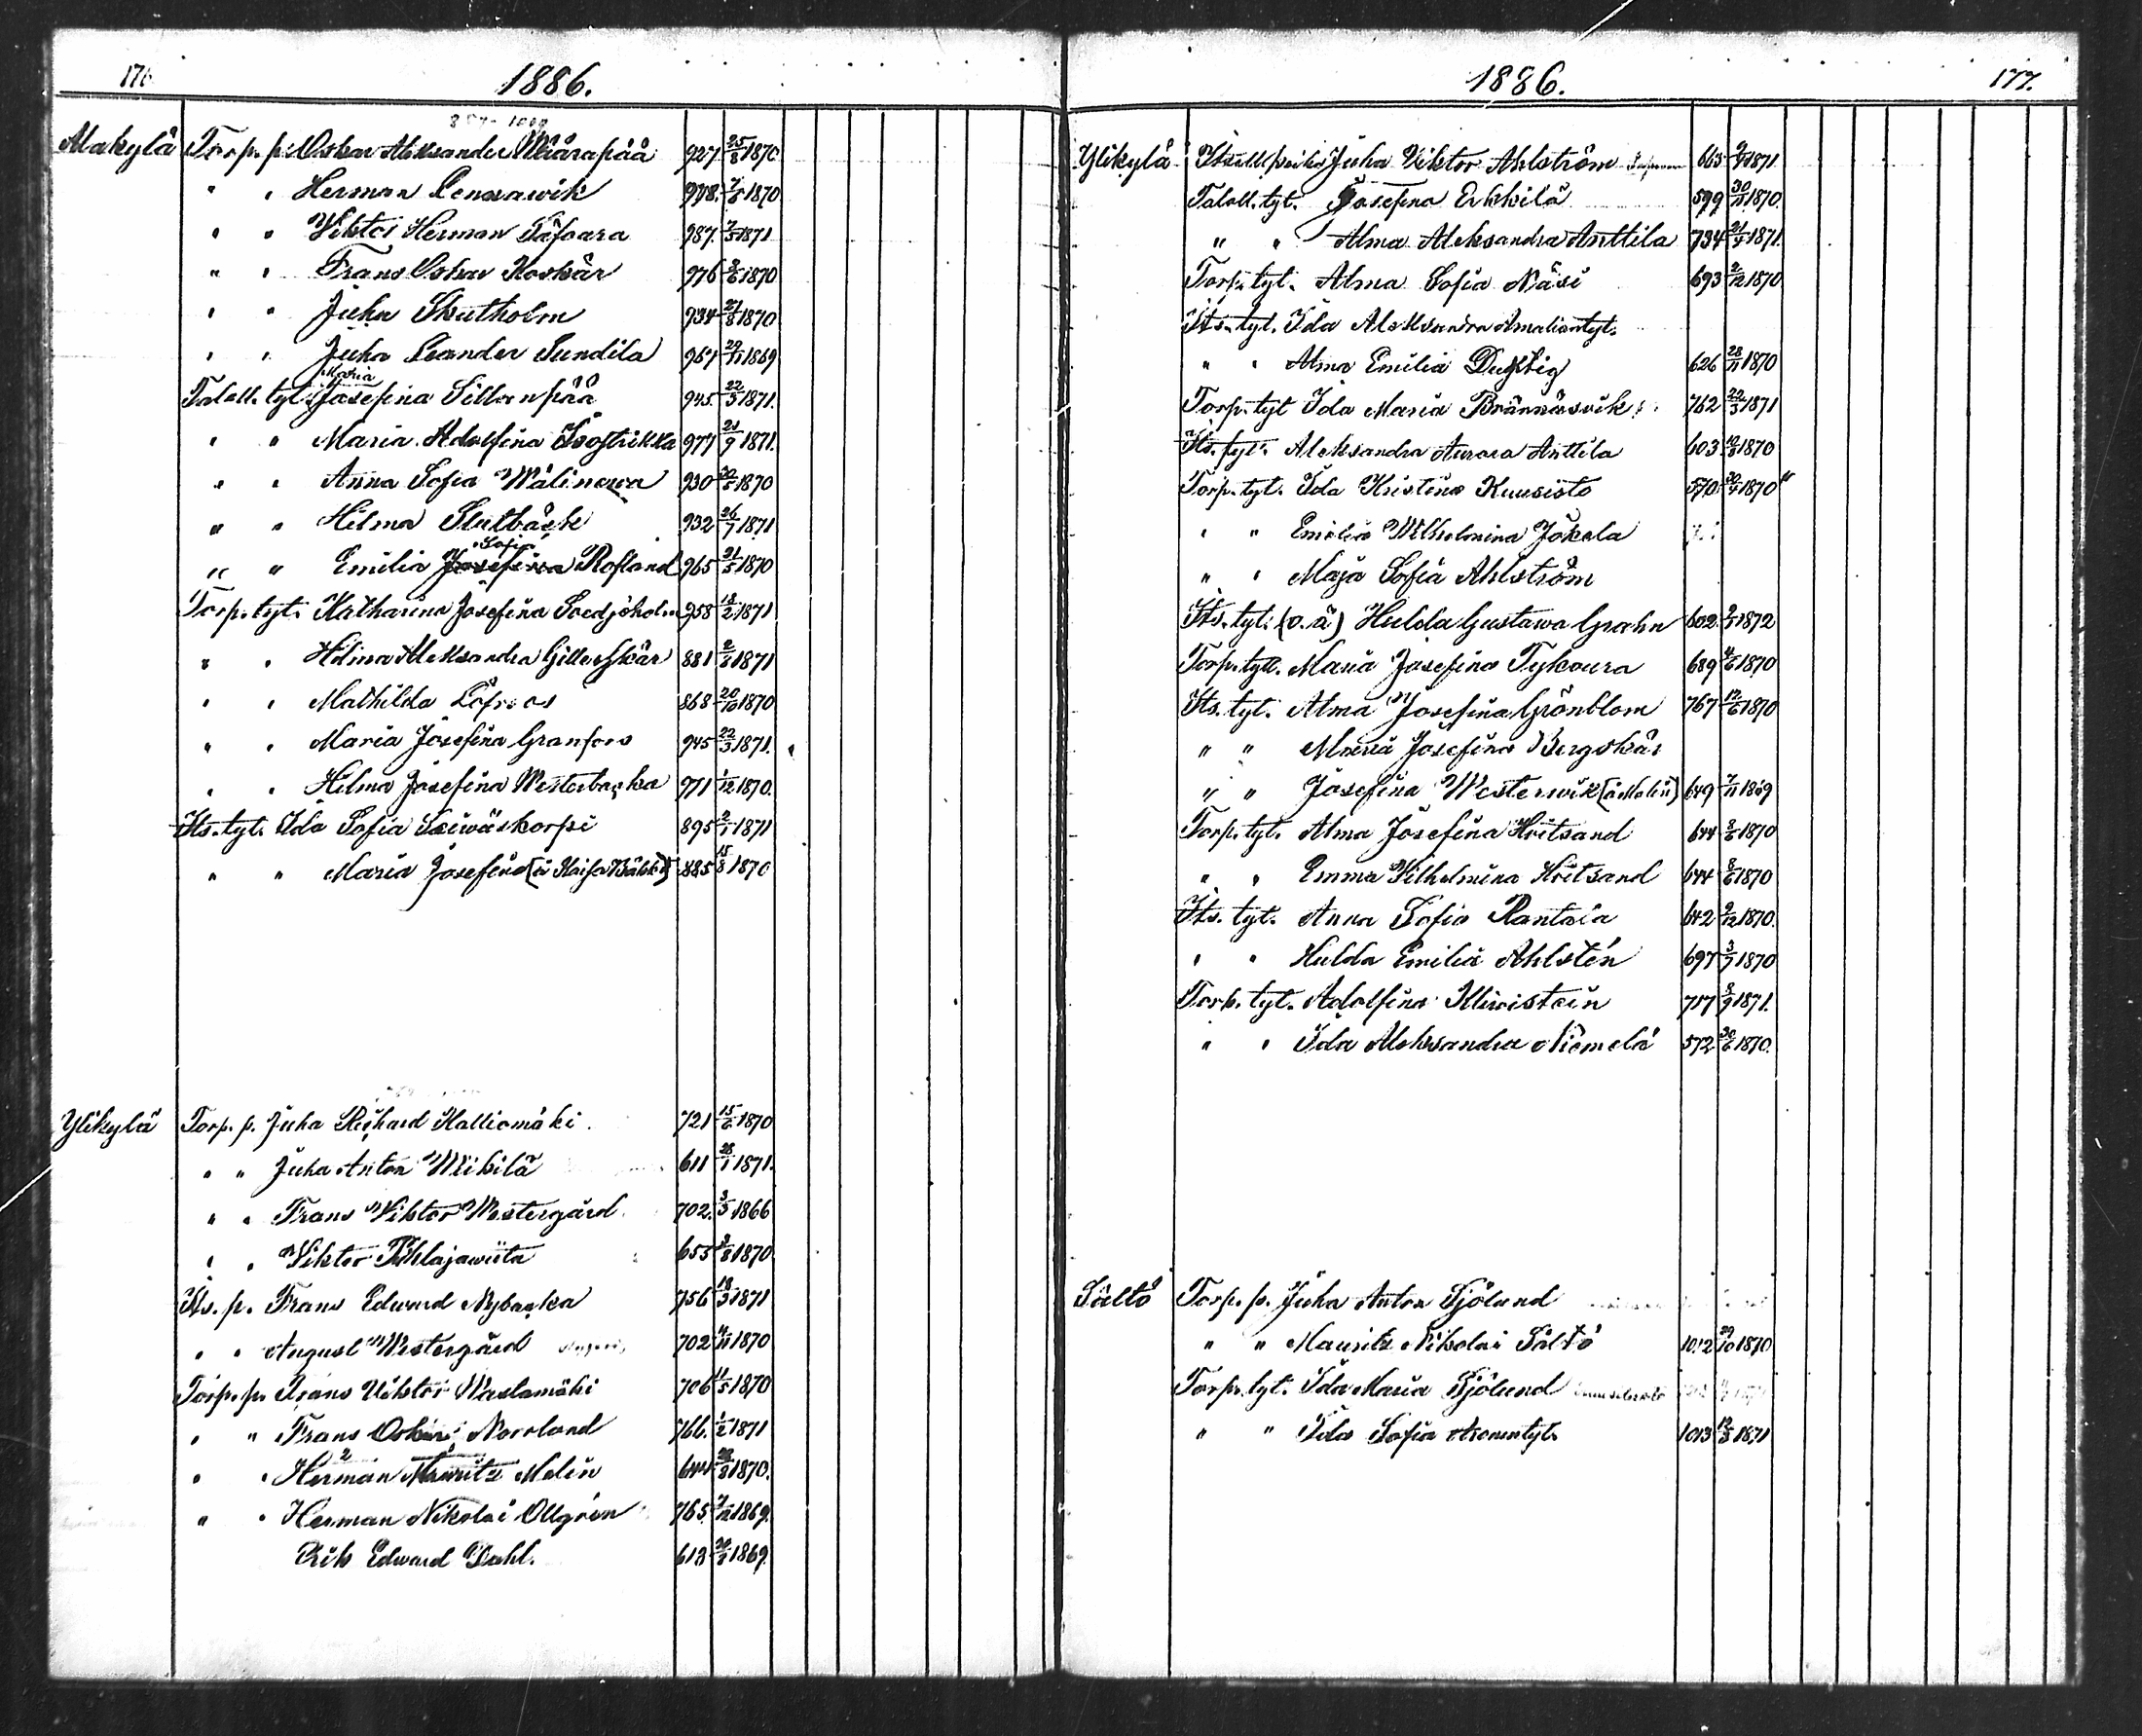 176
1886.
Alakylä Torp. p. Oskar Aleksander Määrapää 927 25/8 1870
" " Herman Lennawik 978. 7/6 1870
" " Viktor Herman 987. 7/3 1871
" " Frans Oskar Koskär 976 9/6 1870
" " Juha Skutholm 934 21/8 1870
" " Juha Leander Sundila 967 29/11 1869
Maria
Taloll. tyt. Josefina Sillanpää 945. 22/3 1871.
" " Maria Adolfina 977 21/9 1871.
" " Anna Sofia Wälinowa 930 20/5 1870
" " Hilma Slutbäck 932 26/7 1871
Sofia
" " Emilia Josefina Rosland 965 21/5 1870
Torp. tyt. Katharina Josefina Soedjöholm 958 18/2 1871
" " Hilma Aleksandra Gillerskär 881 2/8 1871
" " Mathilda 868 20/10 1870
" " Maria Josefina Granfors 945 22/3 1871.
" " Hilma Josefina Westerbacka 971 1/12 1870.
Its. tyt. Ida Sofia Leiwäskorpi 895 2/1 1871
" " Maria Josefina (ä Kaisa Bäkki) 885 15/8 1870
Ylikylä Torp. p. Juha Richard Kalliomäki. 721 15/6 1870
" " Juha Anton Mikilä 611 28/1 1871.
" " Frans Viktor Westergård 702. 3/3 1866
" " Viktor Pihlajawiita 653 9/8 1870
Its. p. Frans Edward Nybacka 756 18/3 1871
" " August Westergård 702 4/11 1870
Torp. p. Frans Viktor Waslamäki 706 11/5 1870
" " Frans Oskar Norrland 766. 1/2 1871
" " Herman Mauritz Melin 644 28/8 1870.
" " Herman Nikolai Ollgrén 765. 7/12 1869.
Erik Edward Dahl. 613 20/2 1869.
1886.
177.
Ylikylä Itsell. poika Juha Viktor Ahlström 665 9/4 1871
Taloll. tyt. Josefina Erkkilä 599 30/11 1870.
" " Alma Aleksandra Anttila 734 21/4 1871.
Torp. tyt. Alma Sofia Näsi 693 2/12 1870
Its. tyt. Ida Aleksandra Amaliantyt.
" " Alma Emilia Duktig 626 28/11 1870
Torp. tyt Ida Maria Brännäsvik 762 22/3 1871
Its. tyt. Aleksandra Aurora Anttila 603 10/8 1870
Torp. tyt. Ida Kristina Kuusisto 570. 30/4 1870
" " Emilia Wilhelmina Jokela
" " Maja Sofia Ahlström
Its. tyt. (o. ä) Hulda Gustawa Grahn 602. 9/1 1872
Torp. tytt. Maria Josefina Tykoura 689 4/6 1870
Its. tyt. Alma Josefina Grönblom 767 12/6 1870
" " Maria Josefina Bergskär
" " Josefina Westerwik (ä Melin) 649 7/11 1869
Torp. tyt. Alma Josefina Hvitsand 644 8/6 1870
" " Emma Wilhelmina Hvitsand 644 8/6 1870
Its. tyt. Anna Sofia Rantala 642 9/12 1870.
" " Hulda Emilia Ahlstén 697 3/7 1870
Torp. tyt. Adolfina Kiiwistoin 717 8/9 1871.
" " Ida Aleksandra Niemelä 572 30/6 1870.
Sälttö Torp. p. Juha Anton Sjölund
" " Mauritz Nikolai Sälttö 1012 29/10 1870
Torp. tyt. Ida Maria Sjölund
" " Ida Sofia 1013 12/3 1871